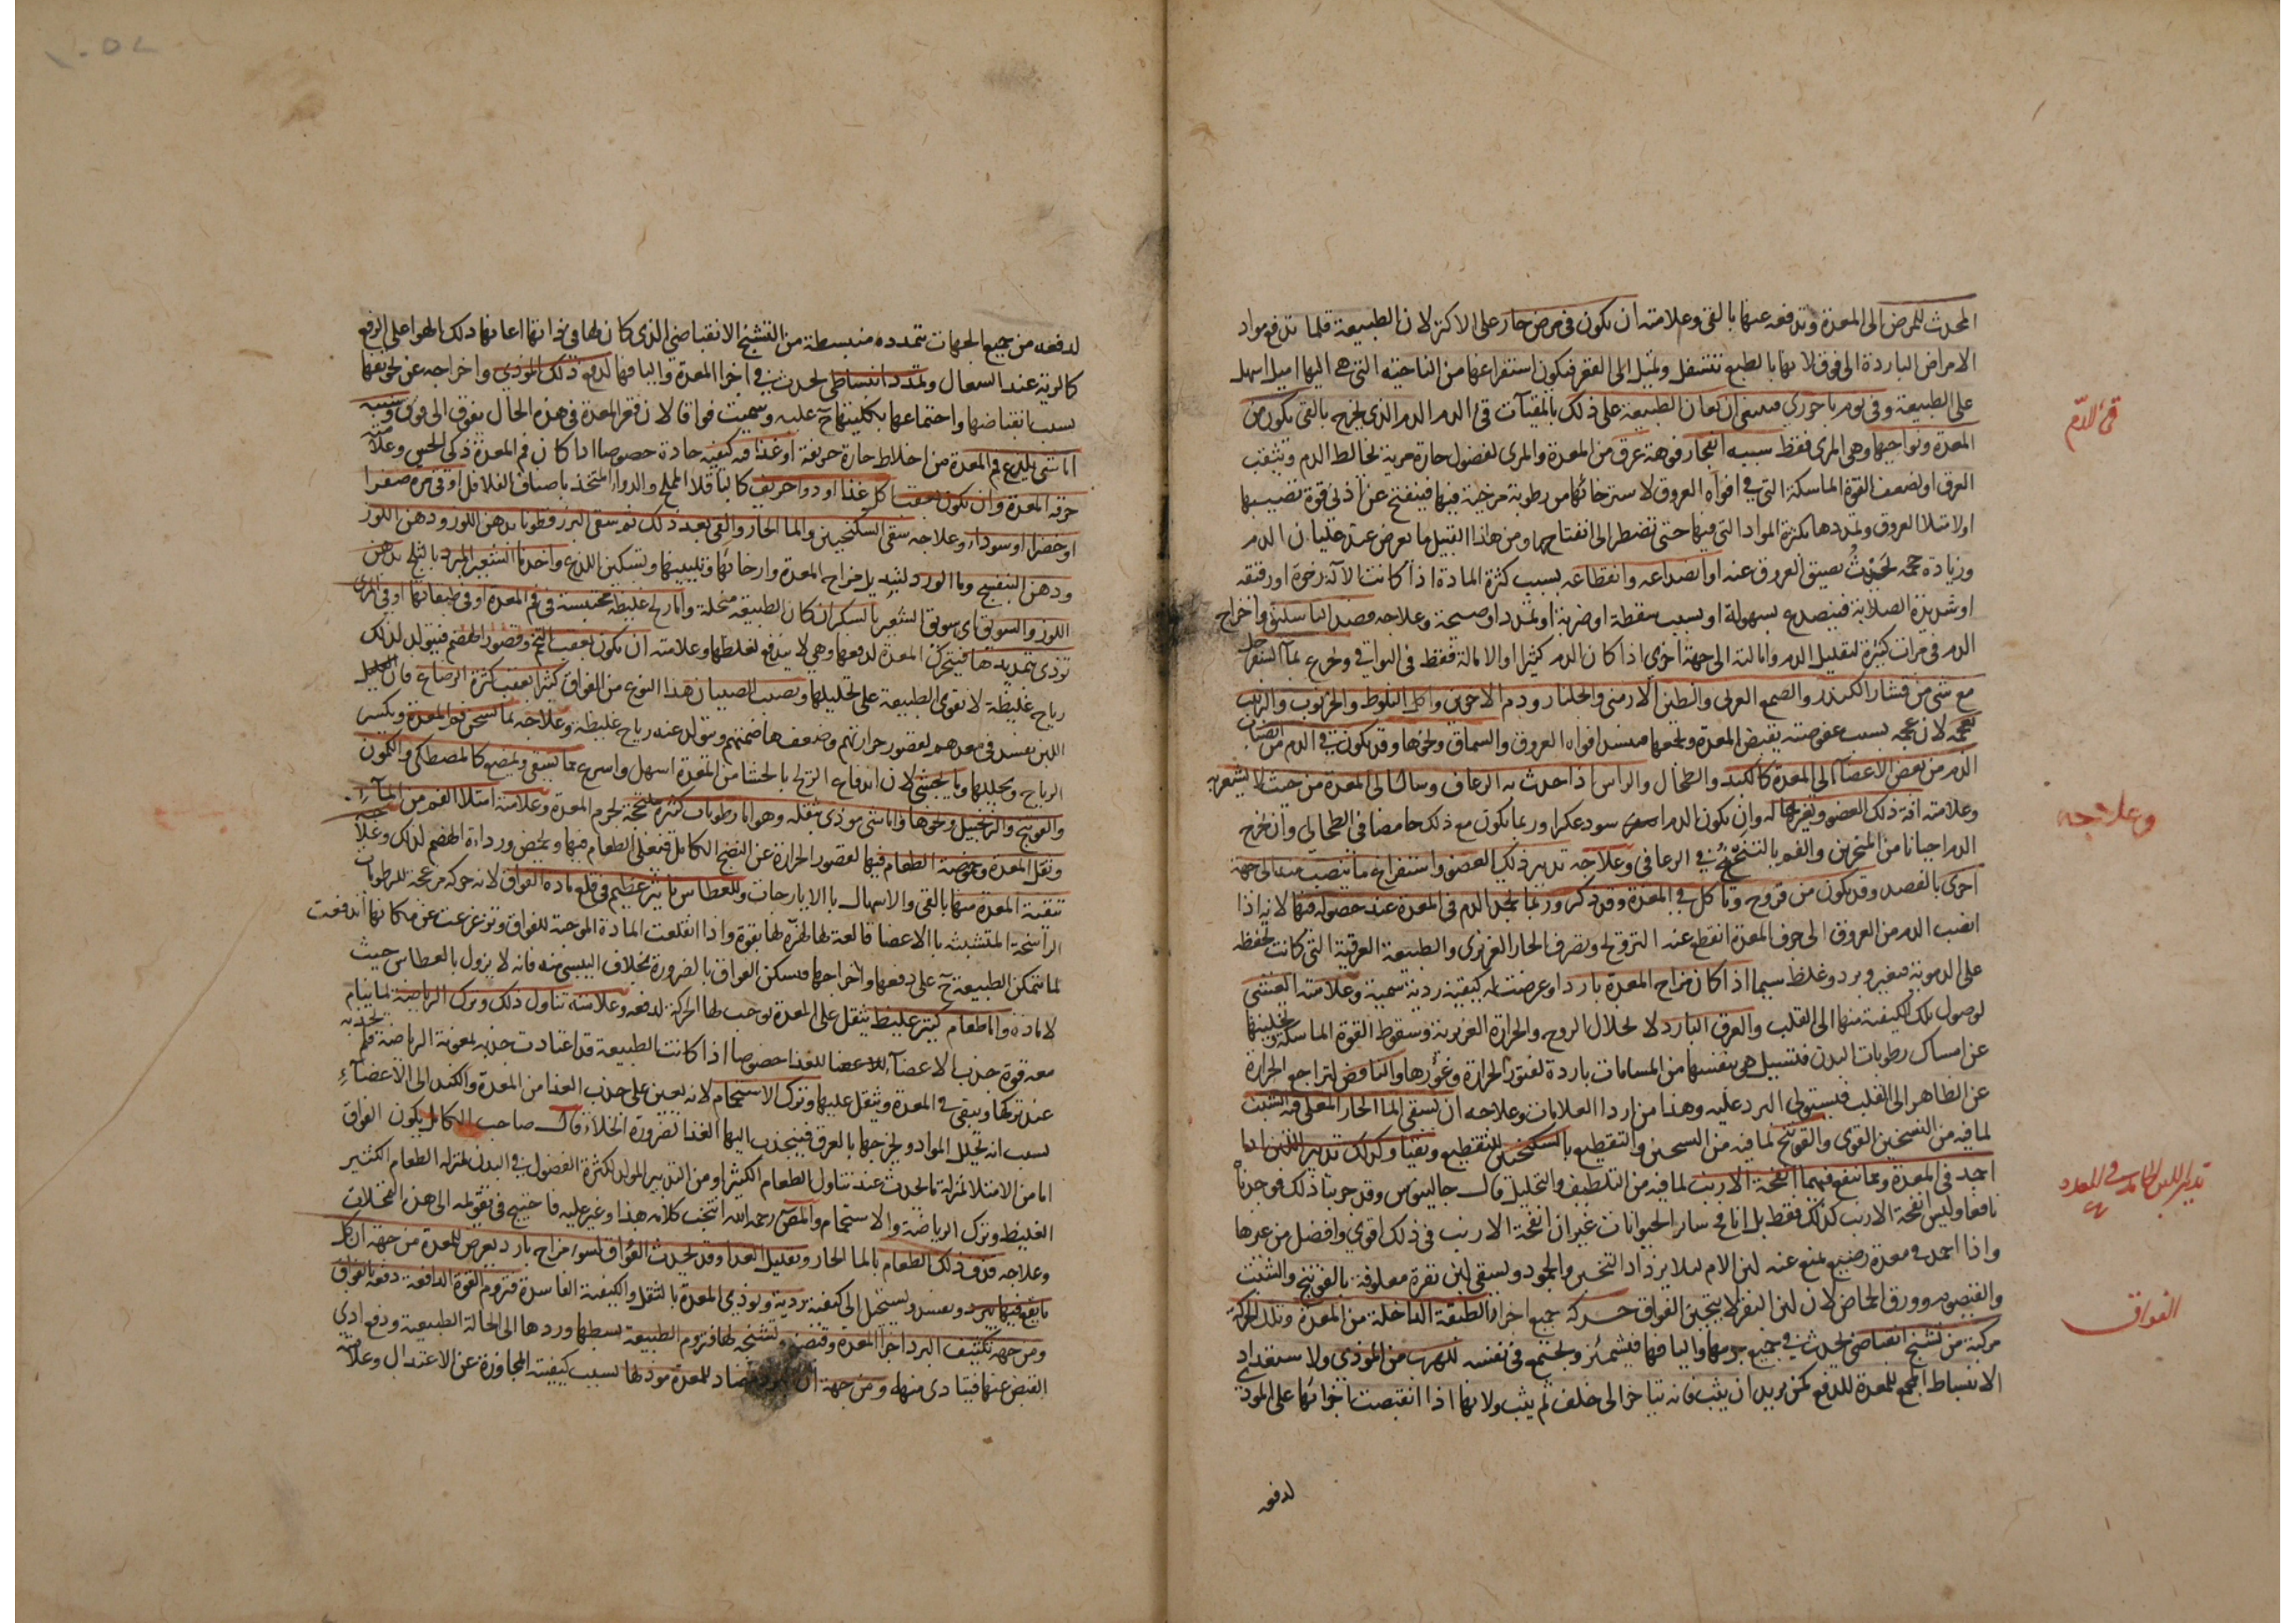 المحدث للمرض الى المعدة وتدفعه عنها بالقى وعلامته ان يكون فى مرض حار على الاكثر لان الطبيعة قلما تدفع مواد
الامراض الباردة الى فوق لانها بالطبع تتسفل وتميل الى القعر فيكون استفراغها من الناحية التى هى اليها اميل اسهل
على الطبيعة وفى يوم باحورى فينبغى ان تعان الطبيعة على ذلك بالمقيآت قئ الدم الدم الذى يخرج بالقى يكون من
قئ الدم
المعدة ونواحيها وهى المرى فقط سببه انفجار فوهة عرق من المعدة والمرى لفضول حارة مرية تخالط الدم وتثقب
العرق او لضعف القوة الماسكة التى فى افواه العروق لاسترخائها من رطوبة مرخية فيها فينفتح عن اذنى قوة تصيبها
او لامتلا العروق وتمددها بكثرة المواد التى فيها حتى تضطر الى انفتاحها ومن هذا القبيل ما يعرض عند غليان الدم
وزيادة حجمه بحيث يضيق العروق عنه او انصداعه وانقطاعه بسبب كثرة المادة اذا كانت الآلة رخوة او رقيقة
او شديدة الصلابة فينصدع بسهولة او بسبب سقطة او ضربة او تمدد او صيحة وعلاجه فصد الباسليق واخراج
الدم فى مرات كثيرة لتقليل الدم وامالته الى جهة اخرى اذا كان الدم كثيرا او الامالة فقط فى البواقى وتجرع بماء السفرجل
مع شى من قشار الكندر والصمغ العربى والطين الارمنى والجلنار ودم الاخوين واكل البلوط والخرنوب والزبيب
بعجمه لان عجمه بسبب عفوصته يقبض المعدة ويجمعها فيسد افواه العروق والسماق ونحوها وقد يكون قئ الدم من انصباب
الدم من بعض الاعضاء الى المعدة كالكبد والطحال والراس اذا حدث به الرعاف وسال الى المعدة من حيث لا يشعر به
وعلامته افة ذلك العضو وتغير حاله وان يكون الدم اسود عكرا وربما يكون مع ذلك حامضا فى الطحالى وان يخرج
وعلاجه
الدم احيانا من المنخرين والفم بالتنخع فى الرعافى وعلاجه تدبير ذلك العضو واستفراغ ما ينصب منه الى جهة
اخرى بالفصد وقد يكون من قروح وتاكل فى المعدة وقد ذكر وربما يجمد الدم فى المعدة عند حصوله فيها لانه اذا
انصب الدم من العروق الى جوف المعدة انقطع عنه التروح وتصرف الحار الغريزى والطبيعة العرقية التى كانت تحفظه
على الدموية فيتغير ويبرد وغلظ سيما اذا كان مزاج المعدة باردا وعرضت له كيفية ردية سمية وعلامته الغشى
لوصول تلك الكيفية منها الى القلب والعرق البارد لانحلال الروح والحرارة الغريزية وسقوط القوة الماسكة وتخليتها
عن امساك رطوبات البدن فتسيل هى بنفسها من المسامات باردة لفتور الحرارة وغورها والنافض لتراجع الحرارة
عن الظاهر الى القلب فيستولى البرد عليه وهذا من اردا العلامات وعلاجه ان يسقى الما الحار المغلى فيه الشبت
لما فيه من التسخين القوى والفوتنج لما فيه من التسخين والتقطيع بالسكنجبين للتقطيع ويقيا وكذلك تدبير اللبن اذا
جمد فى المعدة ومما ينفع فيهما انفحة الارنب لما فيه من التلطيف والتحليل قال جالينوس وقد جربنا ذلك فوجدناه
تدبير اللبن الجامد فى المعدة
نافعا وليس انفحة الارنب كذلك فقط بل انافح سائر الحيوانات غير ان انفحة الارنب فى ذلك اقوى وافضل من غيرها
واذا جمد فى معدة رضيع يمنع عنه لبن الام ليلا يزداد التجبن والجمود ويسقى لبن بقرة معلوفة بالفوتنج والشبت
والقيصوم وورق الحماض لان لبن البقر لا يتجبن الفواق حركة جميع اجزاء الطبقة الداخلة من المعدة وتلك الحركة
الفواق
مركبة من تشنج انقباضى يحدث فى جميع جرمها والياف فيها فيشمئز ويجتمع فى نفسه للهرب من الموذى ولاستعداد
الانبساط الجمع للمعدة للدفع كمن يريد ان يثب فانه يتاخر الى خلف ثم يثب ولانها اذا انقبضت اجزائها على الموذى
لدفعه
لدفعه من جميع الجهات تتمدده منبسطة من التشنج الانقباضى الذى كان لها فى ذاتها اعانها ذلك الهوا على الدفع
كالرية عند السعال وتمدد انبساطى يحدث فى اجزا المعدة واليافها لدفع ذلك الموذى واخراجه عن تجويفها
بسبب انقباضها واجتماعها بكليتها ح عليه وسميت فواقا لان قعر المعدة فى هذه الحال يفوق الى فوق وسببه
اما شى يلذع فم المعدة من اخلاط حارة حريفة او غذا فيه كيفية حادة خصوصا اذا كان فم المعدة ذكى الحس وعلامته
حرقة المعدة وان يكون بعقب اكل غذا او دوا حريف كالباقلا المملح والدواء المتخذ باصناف الفلافل او قى مرة صفرا
او خضرا او سوداء وعلاجه سقى السكنجبين والما الحار والقى بعد ذلك ثم سقى البزرقطونا بدهن اللوز ودهن اللوز
ودهن البنفسج وما الورد لتبديل مزاج المعدة وارخائها وتليينها وتسكين اللذع واخذ ما الشعير المبرد بالثلج بدهن
اللوز والسويق اى سويق الشعير بالسكر ان كان الطبيعة منحلة واما ريح غليظة محتبسة فى فم المعدة او فى طبقاتها او فى المرى
توذى بتمديدها فيتحرك المعدة لدفعها وهى لا يندفع لغلظها وعلامته ان يكون بعقب التخم وقصور الهضم فيتولد لذلك
رياح غليظة لا تقوى الطبيعة على تحليلها ويصيب الصبيان هذا النوع من الفواق كثيرا بعقب كثرة الرضاع فان القليل
اللبن يفسد فى معدهم لقصور حرارتهم وضعف هاضمتهم ويتولد عنه رياح غليظة وعلاجه بما يسخن فم المعدة ويكسر
الرياح ويحللها وبما يجشى لان اندفاع الريح بالجشا من المعدة اسهل واسرع مما يسقى ويمضغ كالمصطكى والكمون
والفوتنج والزنجبيل ونحوها واما شى موذى بثقله وهو اما رطوبات كثيرة متشبثة بجرم المعدة وعلامته امتلا الفم من الماء
وثقل المعدة وحموضة الطعام فيها لقصور الحرارة عن النضج الكامل فيغلى الطعام فيها ويحمض ورداءة الهضم لذلك وعلاجه
تنقية المعدة منها بالقى والاسهال بالايارجات وللعطاس تاثير عظيم فى قلع مادة الفواق لانه حركة مزعجة للرطوبات
الراسخة المتشبثة بالاعضا قالعة لها لهزه لها بقوة واذا انقلعت المادة الموجبة للفواق وتزعزعت عن مكانها اندفعت
لما تتمكن الطبيعة ح على دفعها واخراجها فيسكن الفواق بالضرورة بخلاف اليبسى منه فانه لا يزول بالعطاس حيث
لا مادة واما طعام كثير غليظ يثقل على المعدة يوجب لها الحركة لدفعه وعلامته تناول ذلك وترك الرياضة لما ينام
معه قوة جذب الاعضآء للغذا خصوصا اذا كانت الطبيعة قد اعتادت جذبه بمعونة الرياضة فلم يجذبه
عند تركها ويبقى فى المعدة ويثقل عليها وترك الاستحمام لانه يعين على جذب الغذا من المعدة والكبد الى الاعضآء
بسبب انه يحلل المواد ويخرجها بالعرق فينجذب اليها الغذا لضرورة الخلاء قال صاحب الكامل يكون الفواق
اما من الامتلا بمنزلة ما يحدث عند تناول الطعام الكثير او من التدبير المولد لكثرة الفضول فى البدن بمنزلة الطعام الكثير
الغليظ وترك الرياضة والاستحمام والمصنف رحمه الله انتخب كلامه هذا وغير عليه فاحتيج فى تقويمه الى هذه التمحلات
وعلاجه قذف ذلك الطعام بالما الحار وتقليل الغذا وقد يحدث الفواق لسوء مزاج بارد يعرض للمعدة من جهة ان كل
ما يقع فيها يبرد ويفسد ويستحيل الى كيفية ردية ويوذى المعدة بالثقل والكيفية الفاسدة فتروم القوة الدافعة دفعه بالفواق
ومن جهة تكثيف البرد اجزا المعدة وقبضه وتشنجه لها فتروم الطبيعة بسطها وردها الى الحالة الطبيعية ودفع اذى
القبض عنها فيتادى منها له ومن جهة ان البرد مضاد للمعدة موذ لها بسبب كيفيته المجاوزة عن الاعتدال وعلامته